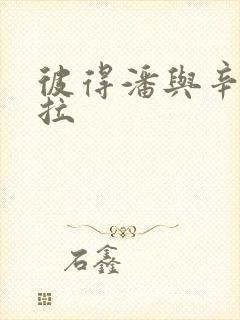 彼得潘與辛
拉
石鑫